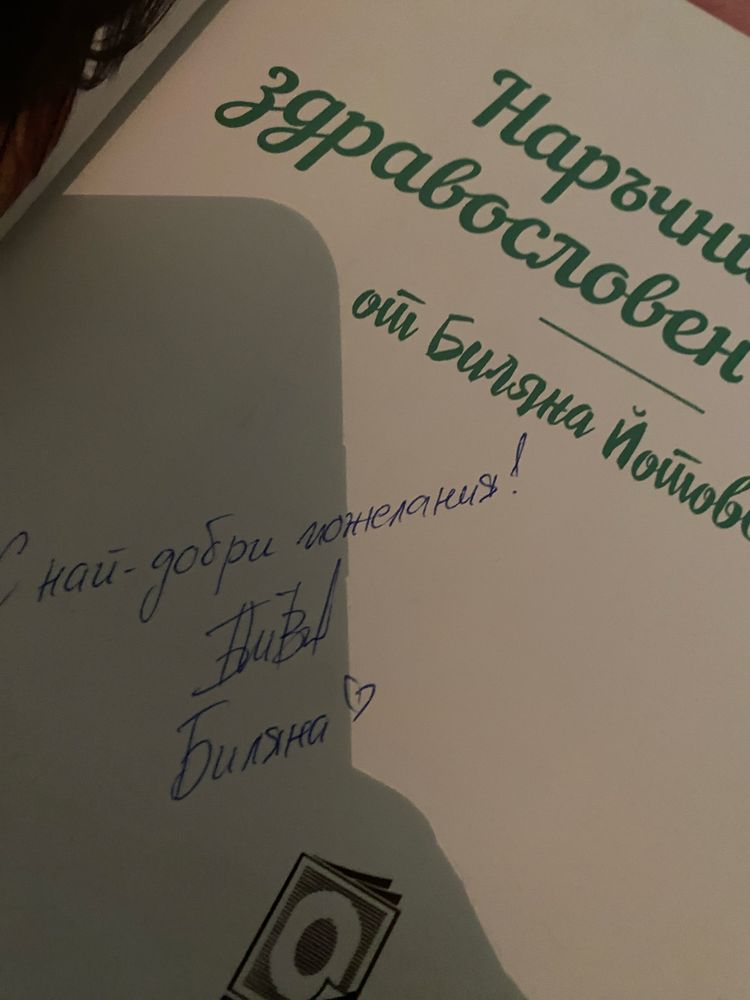 Наръчни
здравословен
от Биляна Йотов
С най-добри пожелания!
Биляна